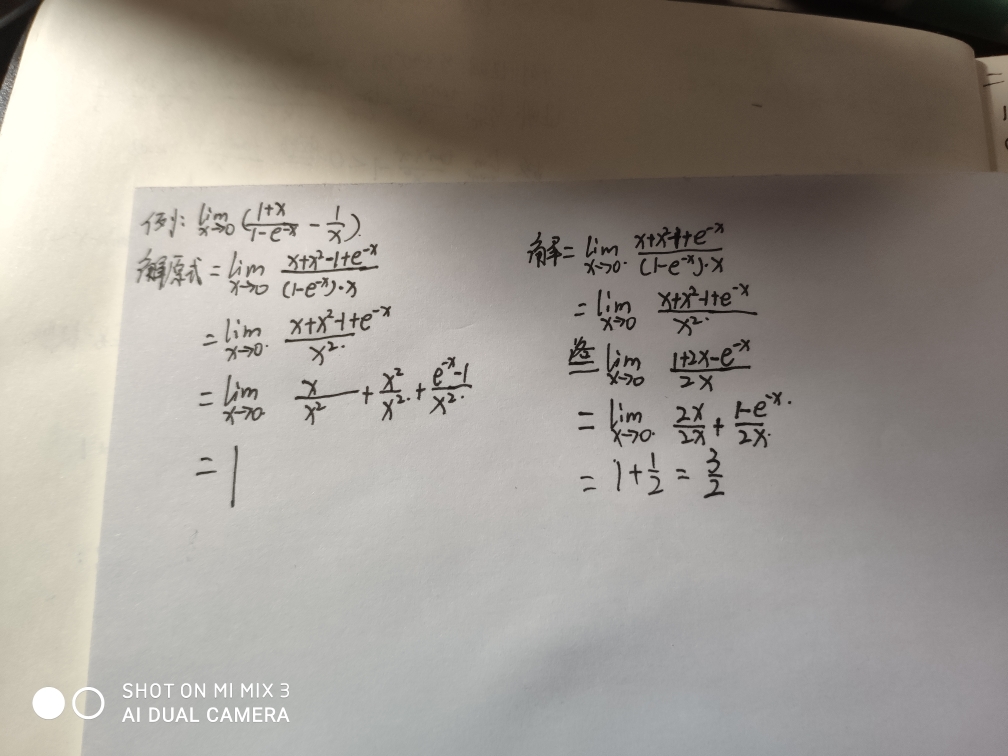 例: lim x→0 (1+x/1-e^-x - 1/x).
解原式 = lim x→0 x+x²-1+e^-x/(1-e^-x)·x
= lim x→0 x+x²-1+e^-x/x²
= lim x→0 x/x² + x²/x² + e^-x-1/x²
= 1
解 = lim x→0 x+x²-1+e^-x/(1-e^-x)·x
= lim x→0 x+x²-1+e^-x/x²
洛= lim x→0 1+2x-e^-x/2x
= lim x→0 2x/2x + 1-e^-x/2x
= 1+1/2 = 3/2
SHOT ON MI MIX 3
AI DUAL CAMERA